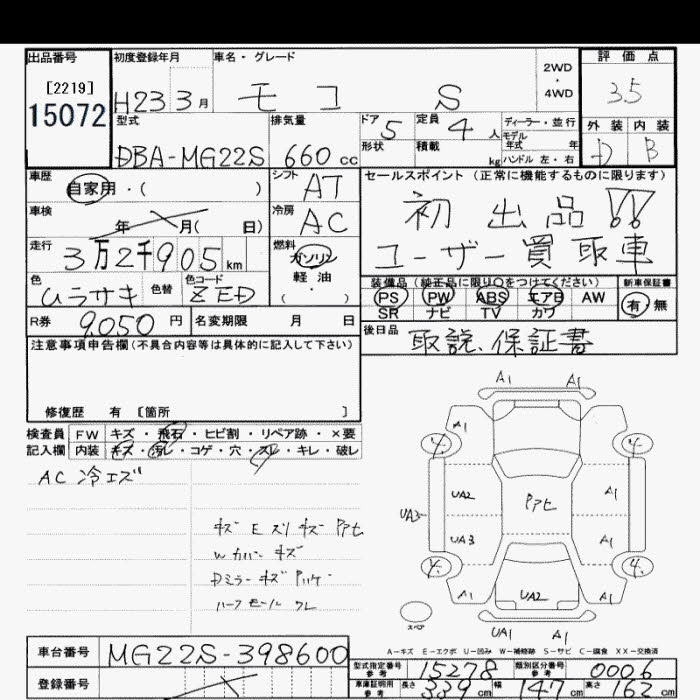 出品番号
[2219]
15072
初度登録年月
H23 3月
車名・グレード
モコ S
2WD
・
4WD
評価点
3.5
外装 内装
D B
型式
DBA-MG22S
排気量
660 cc
ドア 5
形状
定員 4 人
積載 kg
ディーラー・並行
モデル
年式 年
ハンドル 左・右
車歴
自家用・( )
シフト AT
車検
年 月( 日)
冷房 AC
走行
3万2千905 km
燃料
ガソリン
・
軽油
( ・ )
色
ムラサキ
色替
色コード
ZED
R券 9,050 円
名変期限 月 日
セールスポイント (正常に機能するものに限ります)
初出品!!
ユーザー買取車
装備品 (純正品に限り○をつけてください)
PS PW ABS エアB AW
SR ナビ TV カワ
新車保証書
有・無
後日品
取説、保証書
注意事項申告欄(不具合内容等は具体的に記入して下さい)
修復歴 有 〔箇所 〕
検査員
記入欄
FW キズ・飛石・ヒビ割・リペア跡・×要
内装 キズ・汚レ・コゲ・穴・スレ・キレ・破レ
AC 冷エズ
キズ E スリキズ
Wカバー キズ
Dミラー キズ
ハーフモール ワレ
A1 A1
A1 A1
4 4
UA2 A1
UA3
UA3 A1
4 4
A1 UA2 A1
スペア
UA1 A1
A-キズ E-エクボ U-凹み W-補修跡 S-サビ C-腐食 XX-交換済
車台番号 MG22S-398600
登録番号
型式指定番号
参考
15278
類別区分番号
参考
0006
車庫証明用
参考
長さ 339 cm 幅 147 cm 高さ 162 cm